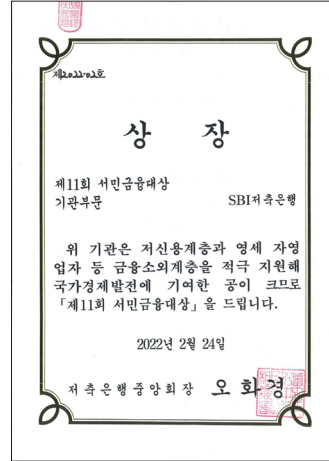 제2022-02호
상 장
제11회 서민금융대상
기관부문 SBI저축은행
위 기관은 저신용계층과 영세 자영
업자 등 금융소외계층을 적극 지원해
국가경제발전에 기여한 공이 크므로
「제11회 서민금융대상」을 드립니다.
2022년 2월 24일
저축은행중앙회장 오화경